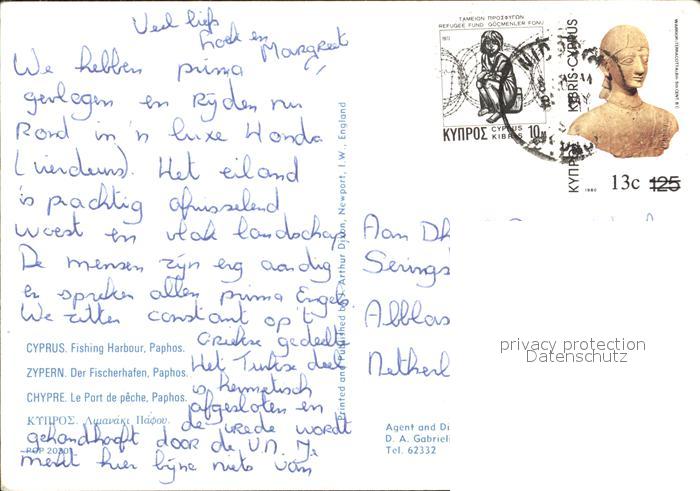 Veel liefs
Loek en
Margreet
We hebben prima
gevlogen en Rijden nu
Rond in 'n luxe Honda
(vierdeurs). Het eiland
is prachtig afwisselend
woest en vlak landschap
De mensen zijn erg aardig
en spreken allen prima Engels.
We zitten constant op 't
Griekse gedeelte
Het Turkse deel
is hermetisch
afgesloten en
de vrede wordt
gehandhaaft door de U.N. Je
merkt hier bijna niets van
CYPRUS. Fishing Harbour, Paphos.
ZYPERN. Der Fischerhafen, Paphos.
CHYPRE. Le Port de pêche, Paphos.
ΚΥΠΡΟΣ. Λιμανάκι Πάφου.
PCP 20301
Printed and Published by Arthur Dixon, Newport, I.W., England
ΤΑΜΕΙΟΝ ΠΡΟΣΦΥΓΩΝ
REFUGEE FUND GÖÇMENLER FONU
1977
ΚΥΠΡΟΣ CYPRUS KIBRIS 10M
ΚΥΠΡΟΣ KIBRIS-CYPRUS
1980
13c 125
Aan
Serings
Abblas
Netherl
privacy protection
Datenschutz
Agent and Di
D. A. Gabriel
Tel. 62332